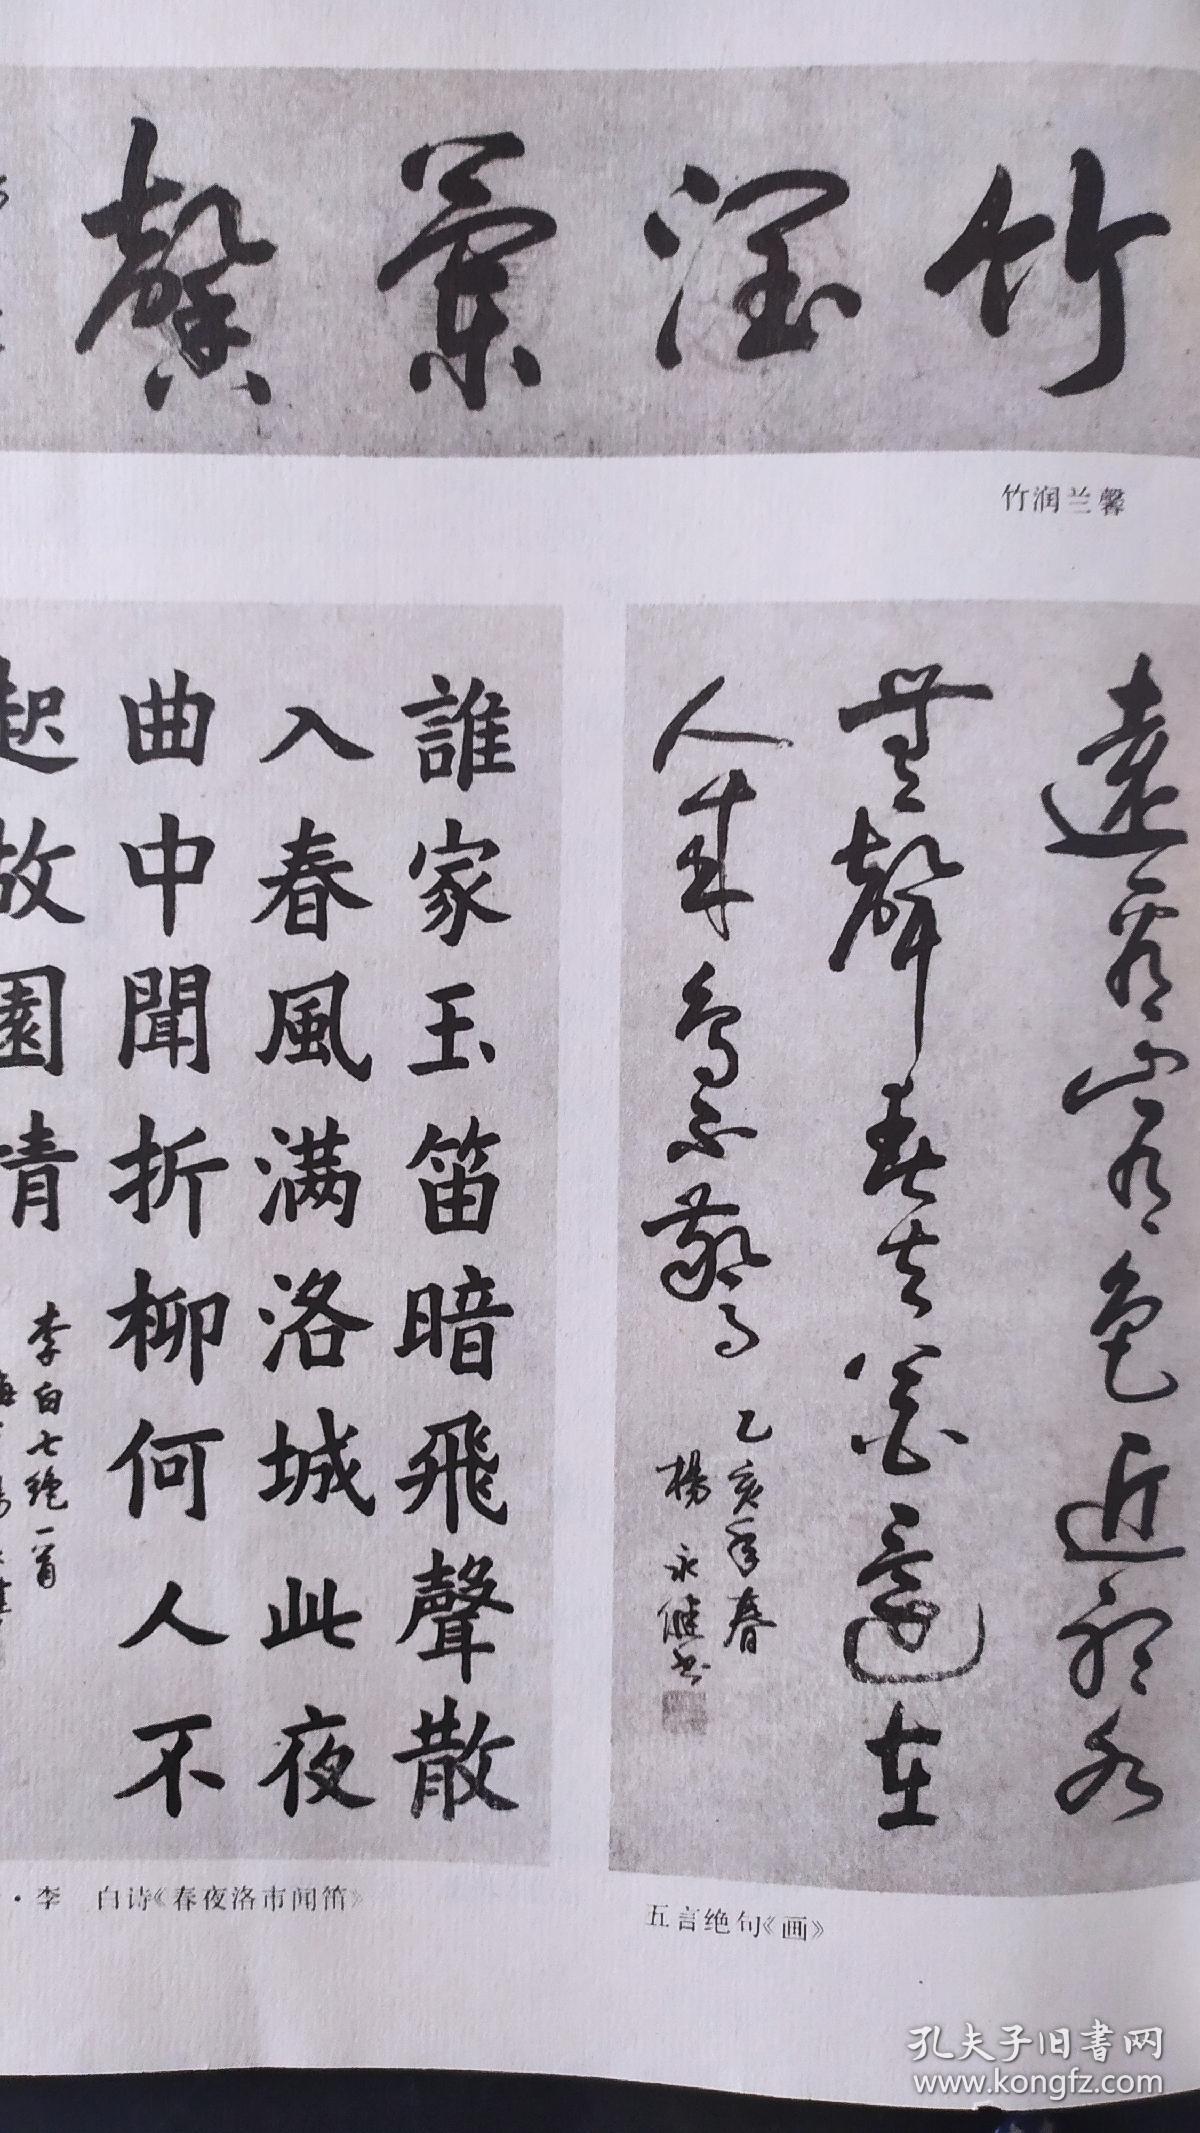 竹潤蘭馨
竹润兰馨
遠看山有色近聽水
無聲春去花還在
人來鳥不驚
乙亥年春
楊永健书
五言绝句《画》
誰家玉笛暗飛聲散
入春風满洛城此夜
曲中聞折柳何人不
起故園情
李白七绝一首
·李 白诗《春夜洛市闻笛》
孔夫子旧书网
www.kongfz.com